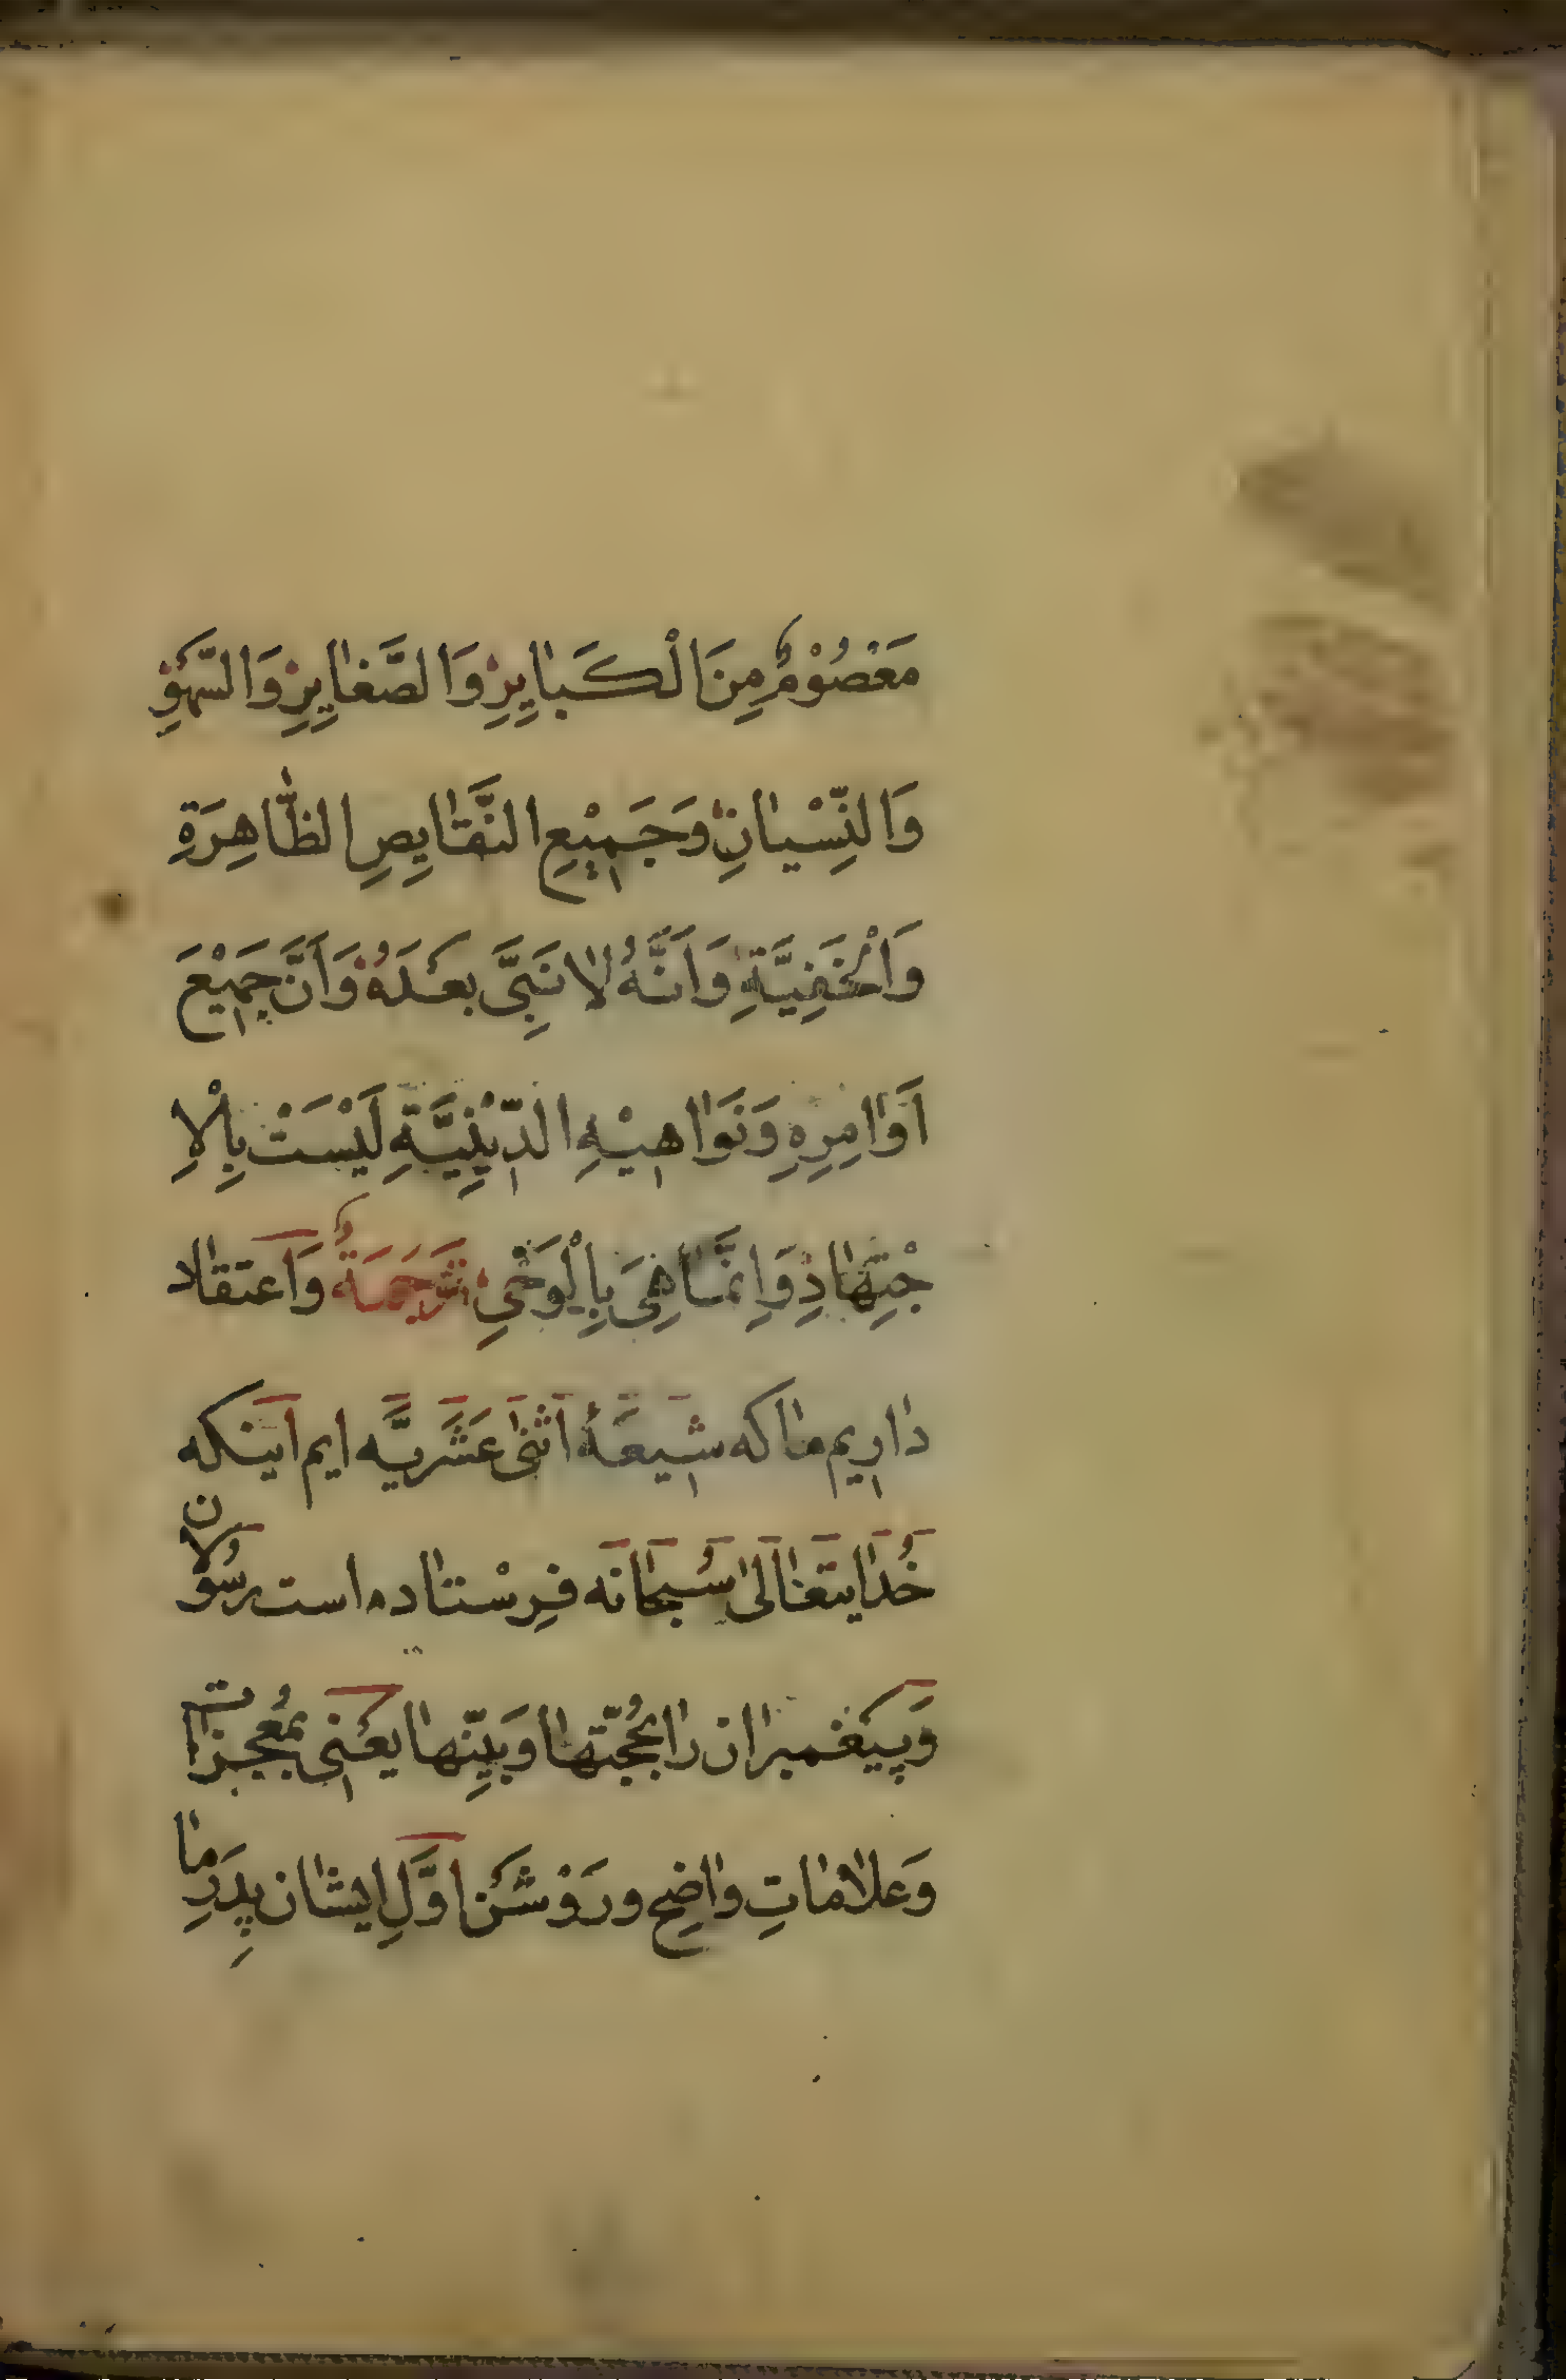 مَعْصُوْمٌ مِنَ الْكَبايِرِ وَالصَّغايِرِ وَالسَّهْوِ
وَالنِّسْيانِ وَجَمِيْعِ النَّقايِصِ الظّاهِرَةِ
وَالْخَفِيَّةِ وَاَنَّهُ لا نَبِىَّ بَعْدَهُ وَاَنَّ جَمِيْعَ
اَوامِرِهِ وَنَواهِيْهِ الدِّيْنِيَّةِ لَيْسَتْ بِالْاِ
جْتِهادِ وَاِنَّما هِىَ بِالْوَحْىِ تَرْجَمَةُ وَاَعتقاد
داريم ما كه شِيعَۀ اَثنىٰ عَشَريَّه ايم اَينكه
خُدايتَعالىٰ سُبحانَه فِرسْتاده است رسُولان
وَپيَغمبران را بحُجّتها وَبيِّنها يَعْنى بمُعجزات
وَعلاماتِ واضِح ورَوْشَن اَوَّلِ ايشان پِدَرِ ما